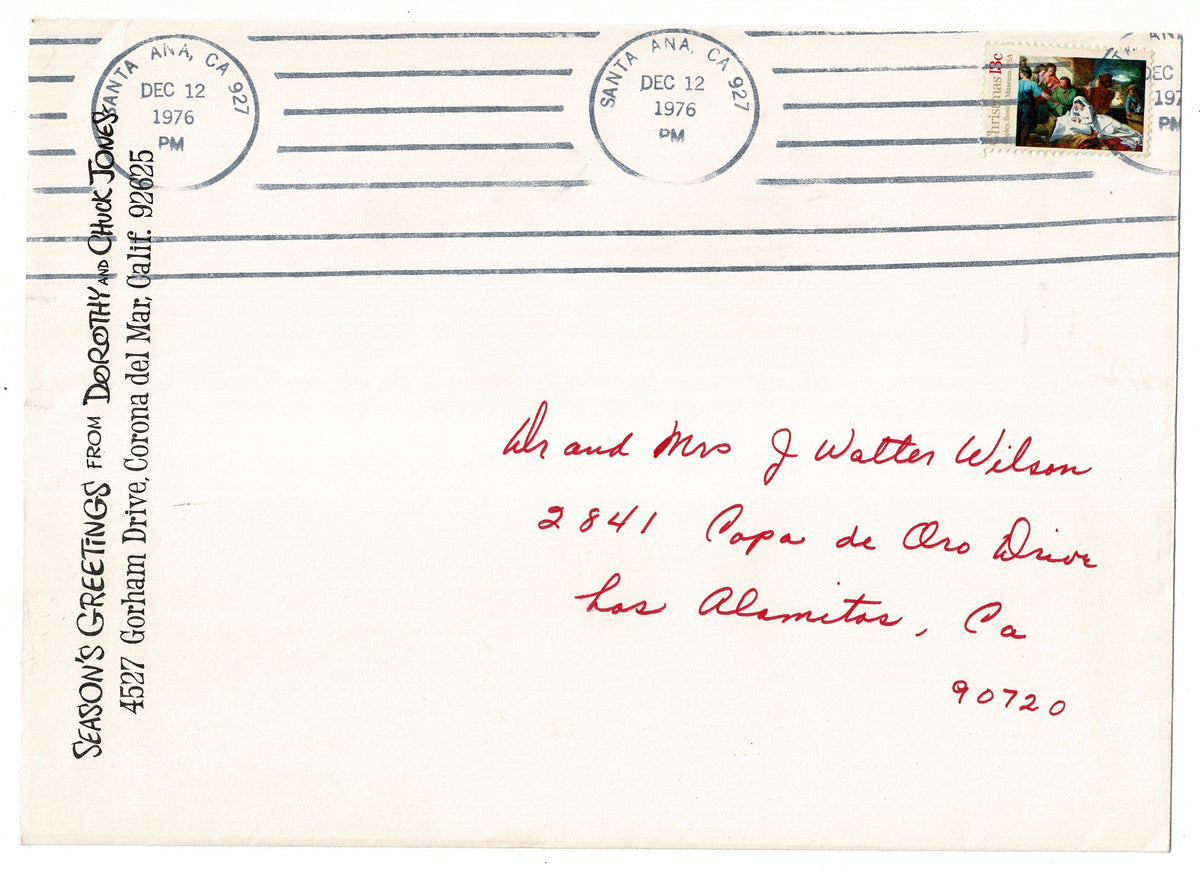 SANTA ANA, CA 927
DEC 12
1976
PM
SANTA ANA, CA 927
DEC 12
1976
PM
Christmas 13c
DEC
197
PM
SEASON'S GREETINGS FROM DOROTHY AND CHUCK JONES
4527 Gorham Drive, Corona del Mar, Calif. 92625
Dr and Mrs J Walter Wilson
2841 Copa de Oro Drive
Los Alamitos, Ca
90720